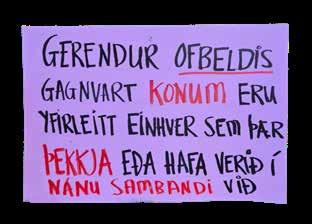 GERENDUR OFBELDIS
GAGNVART KONUM ERU
YFIRLEITT EINHVER SEM ÞÆR
ÞEKKJA EÐA HAFA VERIÐ Í
NÁNU SAMBANDI VIÐ